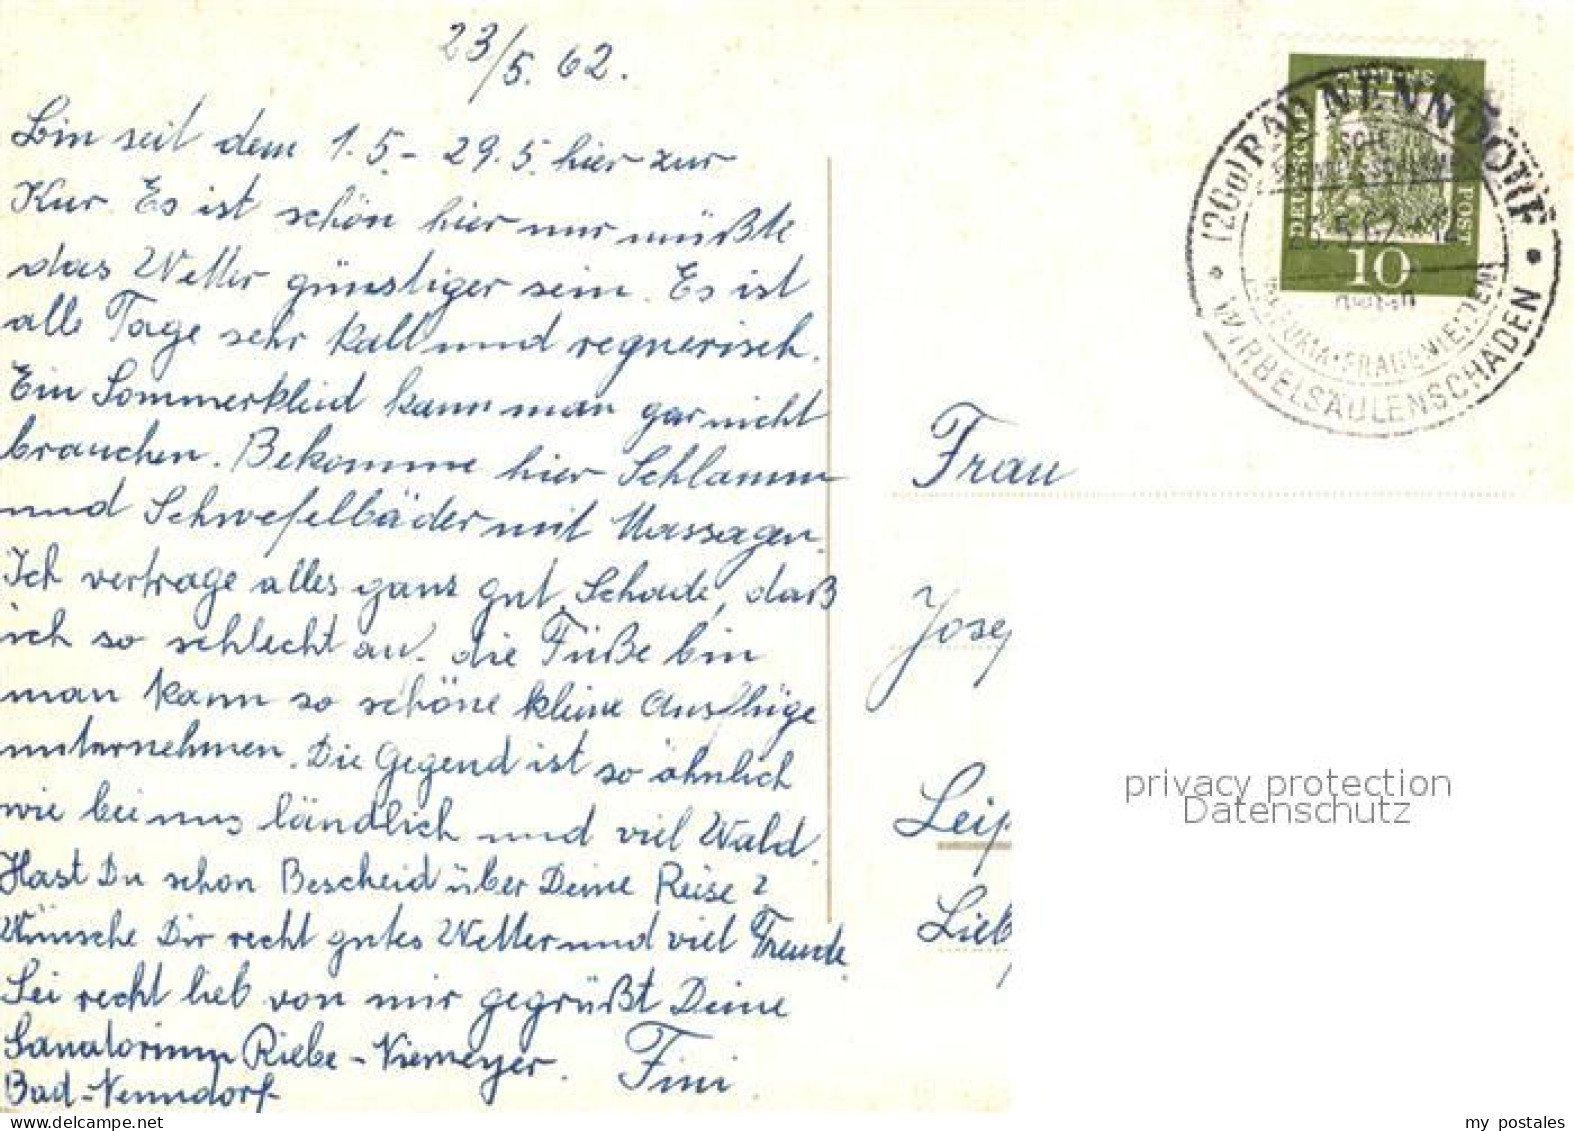 23/5. 62.
Bin seit dem 1.5.- 29.5. hier zur
Kur. Es ist schön hier nur müßte
das Wetter günstiger sein. Es ist
alle Tage sehr kalt und regnerisch.
Ein Sommerkleid kann man gar nicht
brauchen. Bekomme hier Schlamm
und Schwefelbäder mit Massagen.
Ich vertrage alles ganz gut. Schade, daß
ich so schlecht auf die Füße bin
man kann so schöne kleine Ausflüge
unternehmen. Die Gegend ist so ähnlich
wie bei uns ländlich und viel Wald.
Hast Du schon Bescheid über Deine Reise?
Wünsche Dir recht gutes Wetter und viel Freude.
Sei recht lieb von mir gegrüßt Deine
Sanatorium Riebe-Niemeyer. Fini
Bad-Nenndorf
DEUTSCHE POST
10
(20a) BAD NENNDORF
23.5.62-12
RHEUMA·FRAUENLEIDEN
WIRBELSÄULENSCHÄDEN
Frau
Josef
Leip
Lieb
privacy protection
Datenschutz
my postales